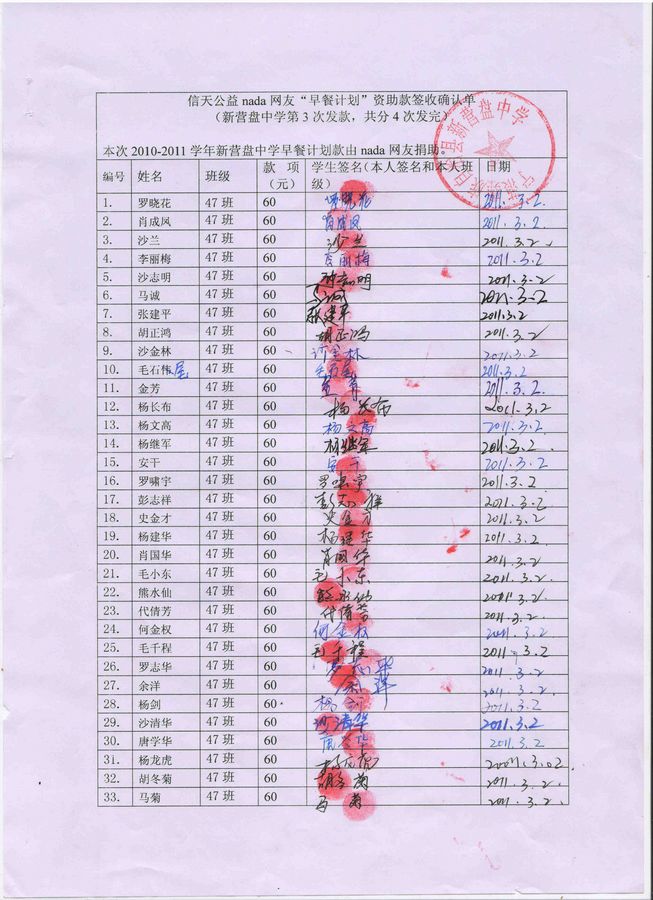 信天公益 nada 网友“早餐计划”资助款签收确认单
（新营盘中学第 3 次发款，共分 4 次发完）
本次 2010-2011 学年新营盘中学早餐计划款由 nada 网友捐助。
编号 姓名 班级 款 项（元） 学生签名（本人签名和本人班级） 日期
1. 罗晓花 47 班 60 罗晓花 2011.3.2.
2. 肖成凤 47 班 60 肖成凤 2011.3.2.
3. 沙兰 47 班 60 沙兰 2011.3.2
4. 李丽梅 47 班 60 李丽梅 2011.3.2
5. 沙志明 47 班 60 沙志明 2011.3.2
6. 马诚 47 班 60 马诚 2011.3.2
7. 张建平 47 班 60 张建平 2011.3.2
8. 胡正鸿 47 班 60 胡正鸿 2011.3.2
9. 沙金林 47 班 60 沙金林 2011.3.2
10. 毛石 尾 47 班 60 2011.3.2
11. 金芳 47 班 60 金芳 2011.3.2.
12. 杨长布 47 班 60 杨长布 2011.3.2
13. 杨文高 47 班 60 杨文高 2011.3.2
14. 杨继军 47 班 60 杨继军 2011.3.2
15. 安干 47 班 60 安干 2011.3.2
16. 罗啸宇 47 班 60 罗啸宇 2011.3.2
17. 彭志祥 47 班 60 彭志祥 2011.3.2.
18. 史金才 47 班 60 史金才 2011.3.2
19. 杨建华 47 班 60 杨建华 2011.3.2
20. 肖国华 47 班 60 肖国华 2011.3.2
21. 毛小东 47 班 60 毛小东 2011.3.2.
22. 熊水仙 47 班 60 熊水仙 2011.3.2.
23. 代倩芳 47 班 60 代倩芳 2011.3.2.
24. 何金权 47 班 60 何金权 2011.3.2
25. 毛千程 47 班 60 毛千程 2011.3.2.
26. 罗志华 47 班 60 罗志华 2011.3.2
27. 余洋 47 班 60 余洋 2011.3.2.
28. 杨剑 47 班 60 杨剑 2011.3.2
29. 沙清华 47 班 60 沙清华 2011.3.2
30. 唐学华 47 班 60 2011.3.2
31. 杨龙虎 47 班 60 杨龙虎 2011.3.02
32. 胡冬菊 47 班 60 胡冬菊 2011.3.2.
33. 马菊 47 班 60 马菊 2011.3.2.
县新营盘中学